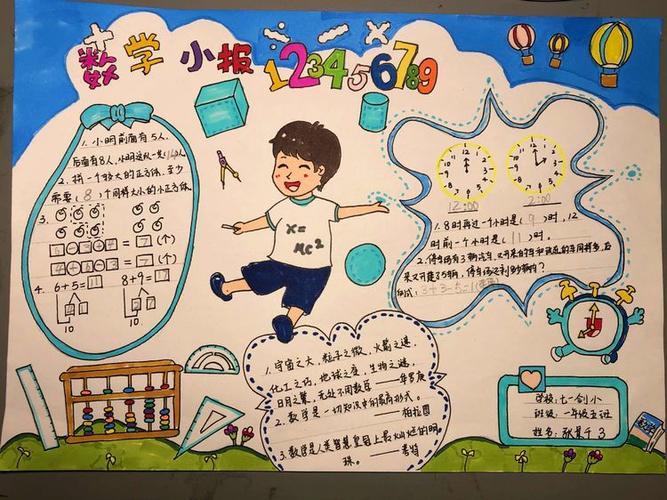 数学小报
123456789
1. 小明前面有5人,
后面有8人,小明这队一共(14)人
2. 拼一个较大的正方体,至少
需要(8)个同样大小的小正方体.
3.
7(个)
7(个)
4. 6+5=11 8+9=17
10 10
X=
MC²
12:00 2:00
1. 8时再过一小时是(9)时, 12
时前一个小时是(11)时.
2. 停车场有3辆汽车,
列式: 3+3-5=1
1. 宇宙之大 粒子之微, 火箭之速,
化工之巧, 地球之变, 生物之谜,
日月之繁, 无处不用数学 ——华罗庚
2. 数学是一切知识中的最高形式。
——柏拉图
3. 数学是人类智慧皇冠上最灿烂的明
珠。 ——考特
学校: 七一剑小
班级: 一年级五班
姓名: